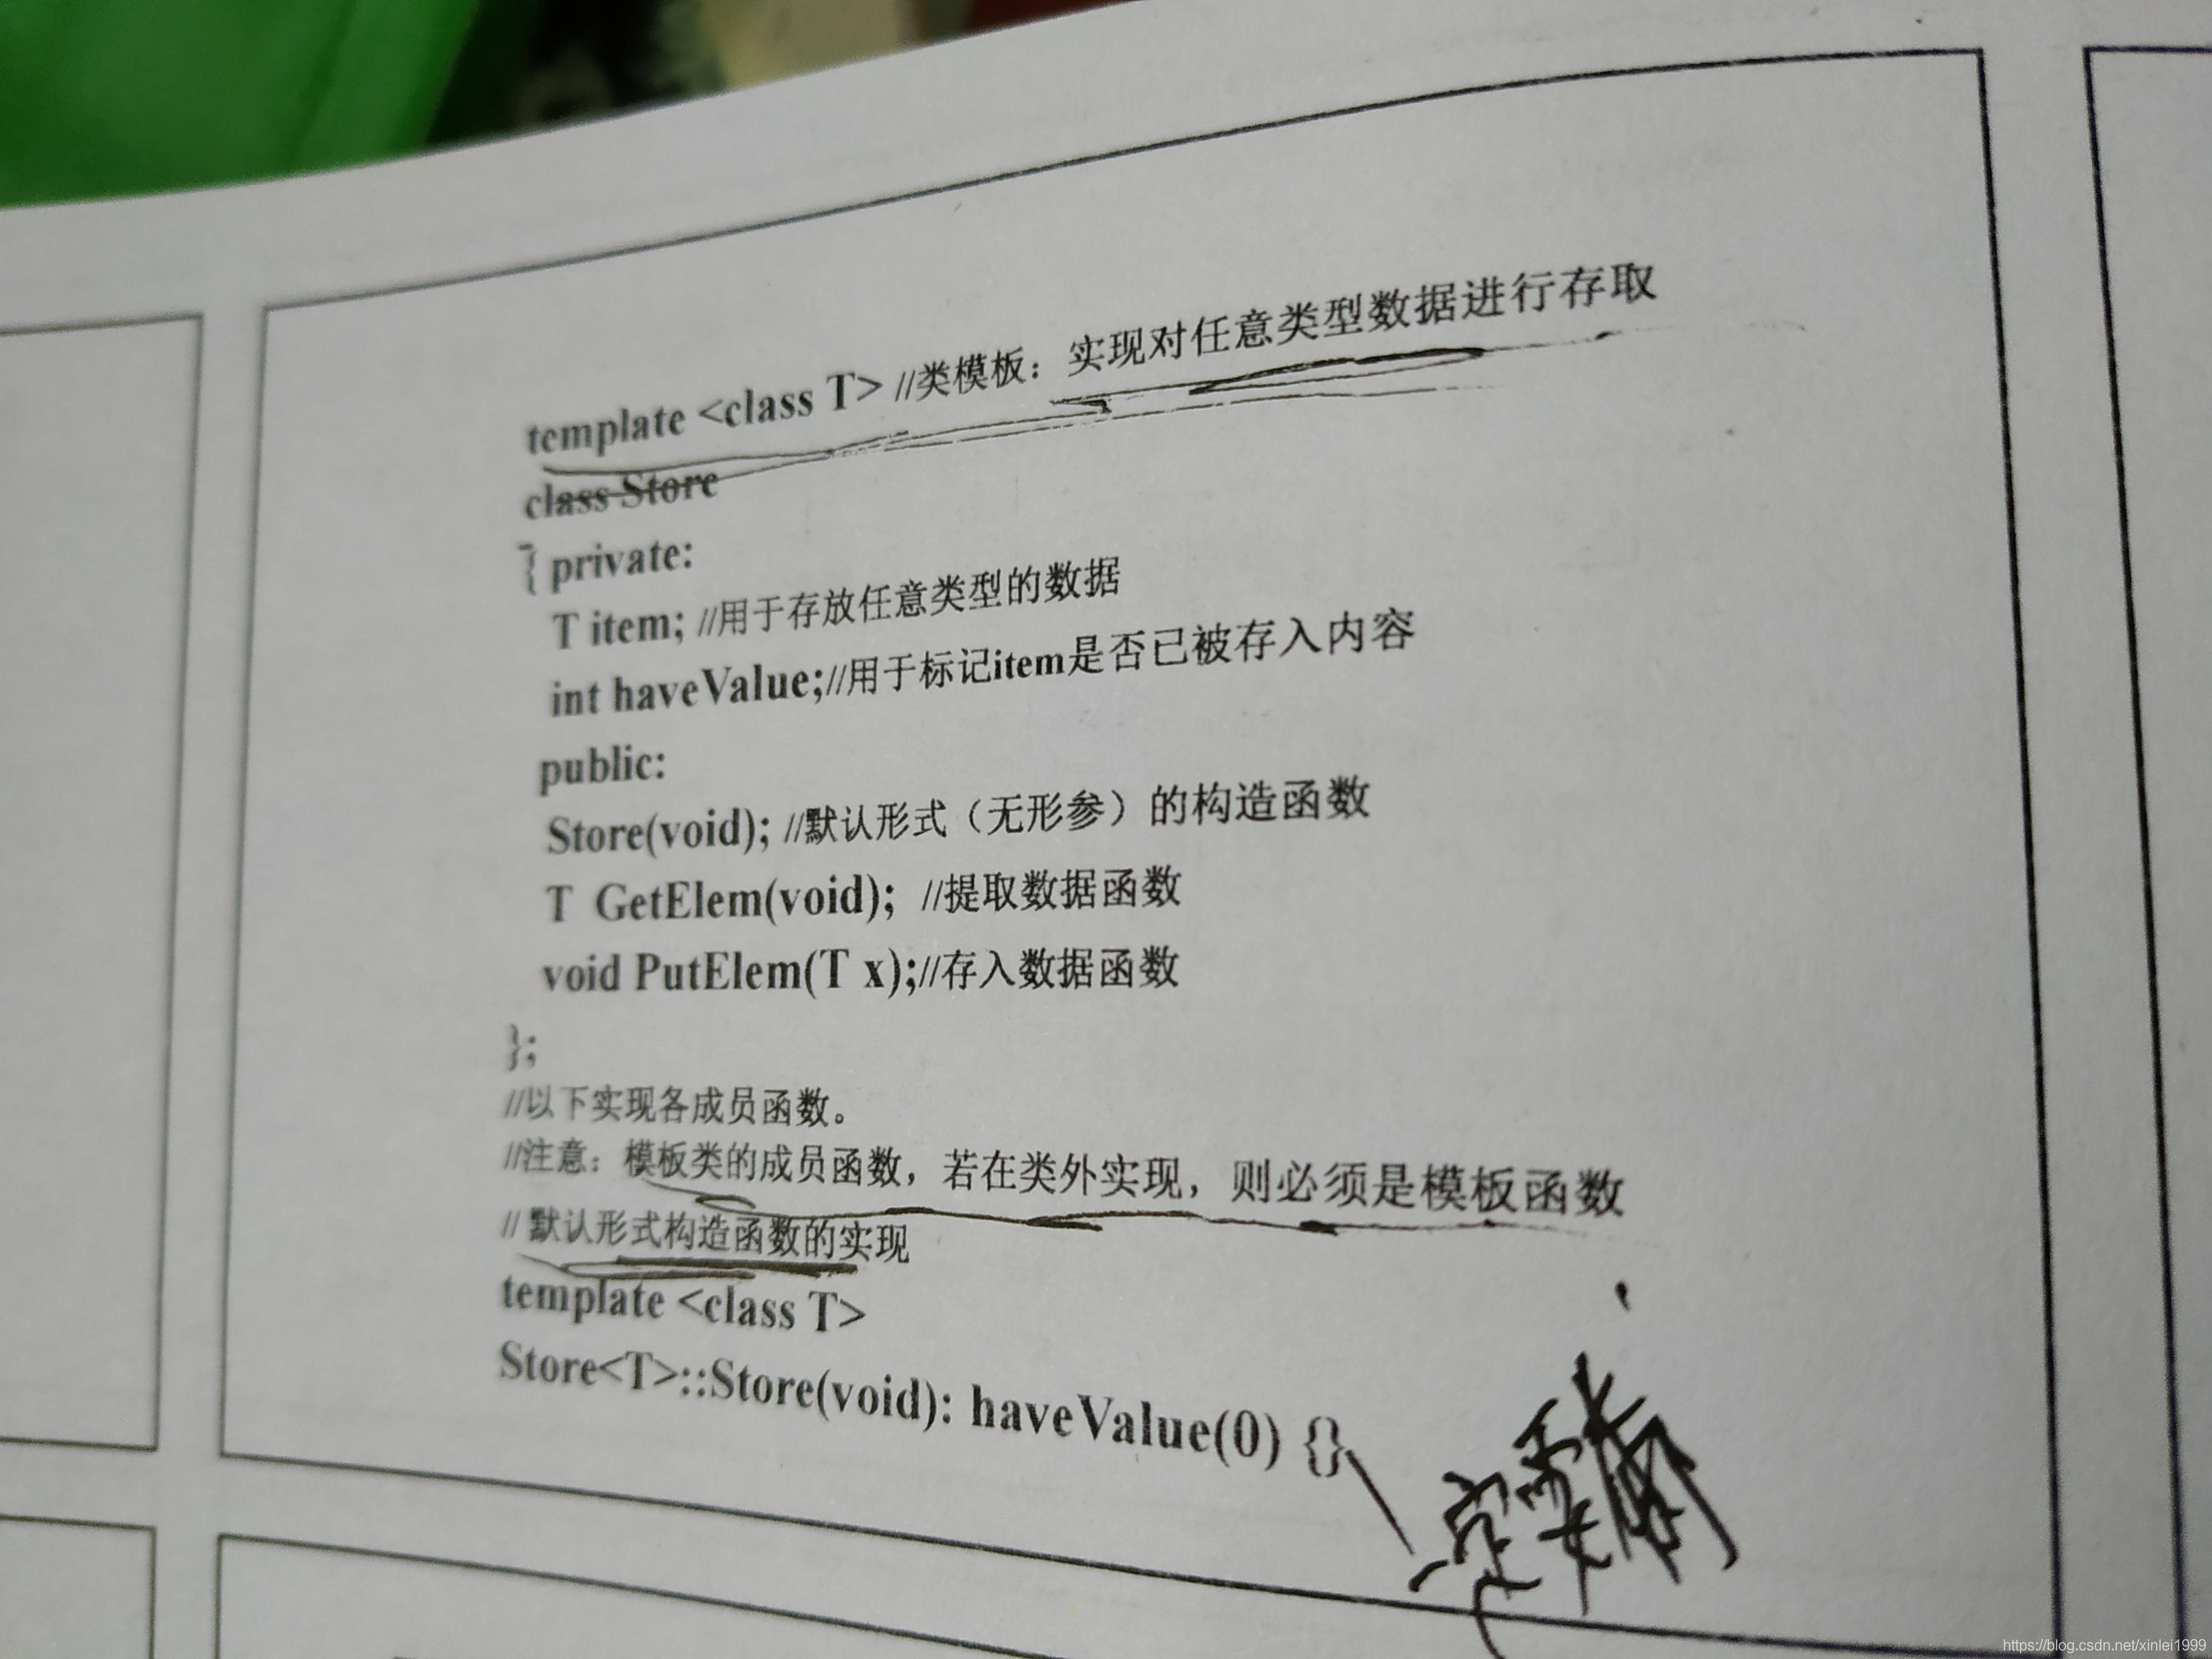 template <class T> //类模板：实现对任意类型数据进行存取
class Store
{ private:
T item; //用于存放任意类型的数据
int haveValue;//用于标记item是否已被存入内容
public:
Store(void); //默认形式（无形参）的构造函数
T GetElem(void); //提取数据函数
void PutElem(T x);//存入数据函数
};
//以下实现各成员函数。
//注意：模板类的成员函数，若在类外实现，则必须是模板函数
// 默认形式构造函数的实现
template <class T>
Store<T>::Store(void): haveValue(0) {}
一定要有
https://blog.csdn.net/xinlei1999